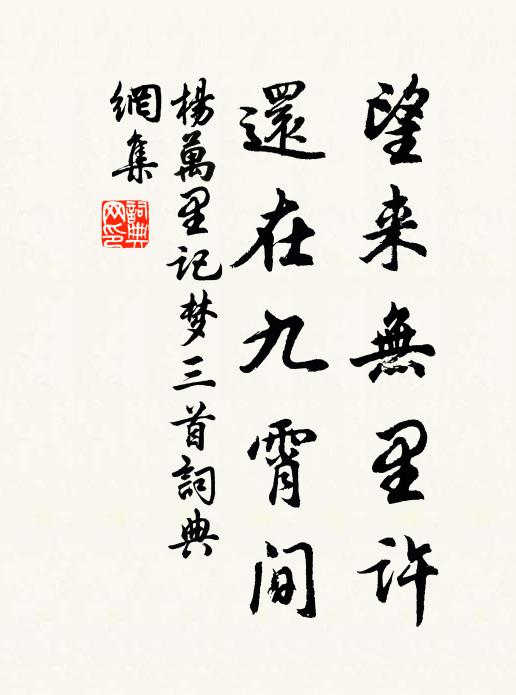 望来無里許
還在九霄間
楊萬里記梦三首詞典
網集
詞典
网印